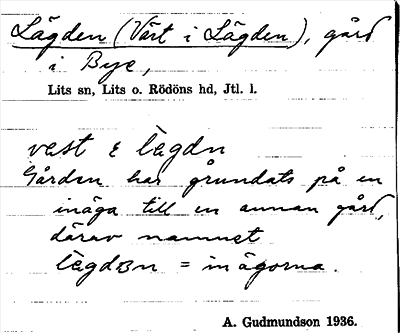 Lägden (Väst i Lägden), gård
i Bye,
Lits sn, Lits o. Rödöns hd, Jtl. l.
vest ɩ lègdn
Gården har grundats på en
inäga till en annan gård,
därav namnet
lègdɐn = inägorna.
A. Gudmundson 1936.